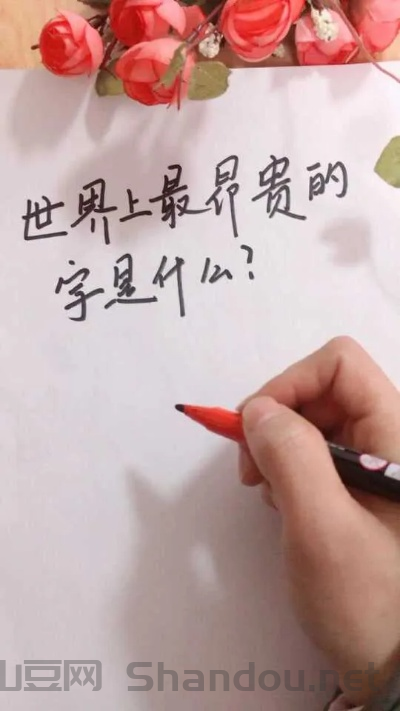 世界上最昂贵的
字是什么?
山豆网 Shandou.net